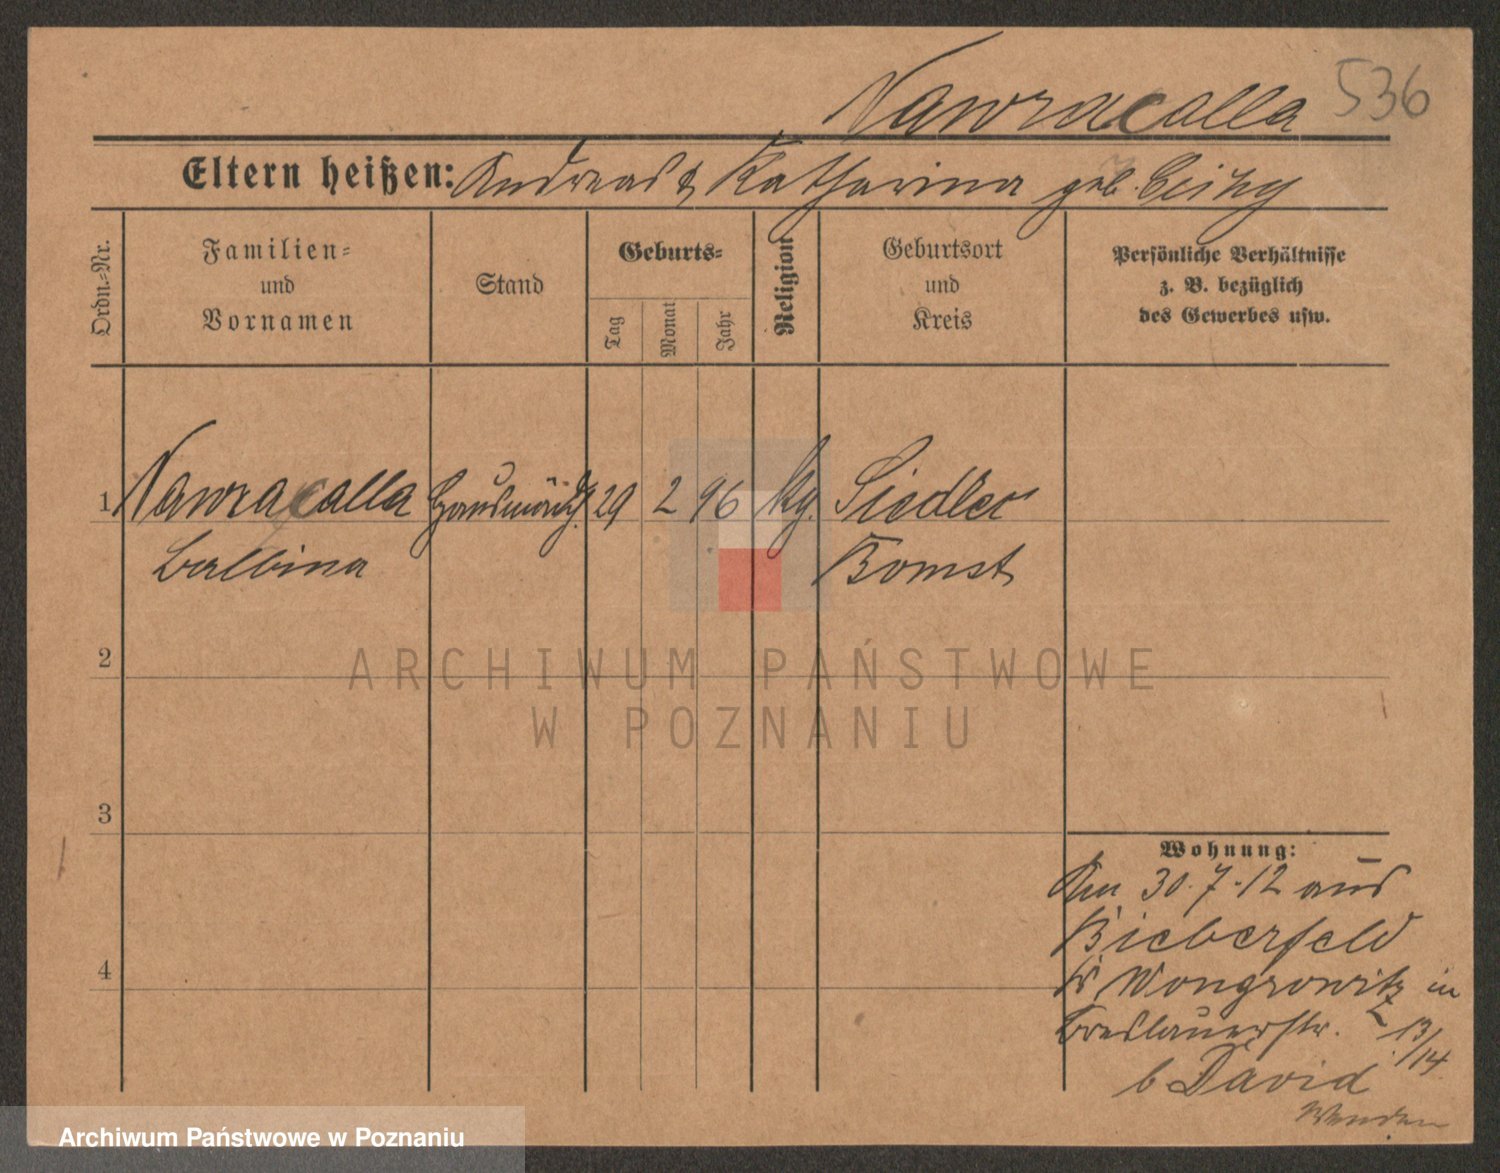 Nawracalla 536
Eltern heißen: Andreas & Katharina geb.
Ordn.-Nr.
Familien-
und
Vornamen
Stand
Geburts-
Tag
Monat
Jahr
Religion
Geburtsort
und
Kreis
Persönliche Verhältnisse
z. B. bezüglich
des Gewerbes usw.
1 Nawracalla Hausmädch. 29 2 96 kg. Siedlec
Balbina Bomst
2
ARCHIWUM PAŃSTWOWE
W POZNANIU
3
Wohnung:
Am 30.7.12 aus
Bieberfeld
Kr Wongrowitz in
Breslauerstr. 13/14
b David
Wenden
4
Archiwum Państwowe w Poznaniu